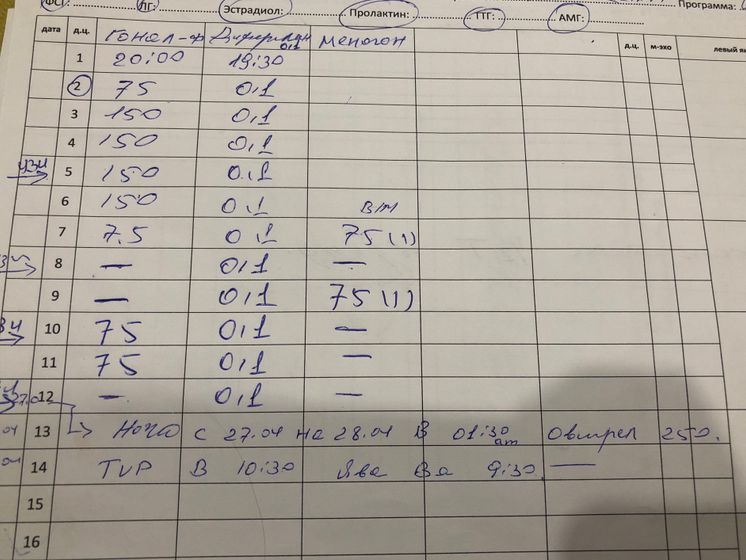 ФСГ: ЛГ: Эстрадиол: Пролактин: ТТГ: АМГ: Программа:
дата д.ц. Гонал-ф Диферелин 0,1 Меногон д.ц. м-эхо левый яи
1 20:00 19:30
2 75 0,1
3 150 0,1
4 150 0,1
УЗИ 5 150 0,1
6 150 0,1 В/М
7 7.5 0,1 75 (1)
8 — 0,1 —
9 — 0,1 75 (1)
10 75 0,1 —
11 75 0,1 —
12 — 0,1 —
04 13 Ночь с 27.04 на 28.04 в 01:30 Овитрел 250.
04 14 TVP в 10:30 Явка в 9:30 —
15
16